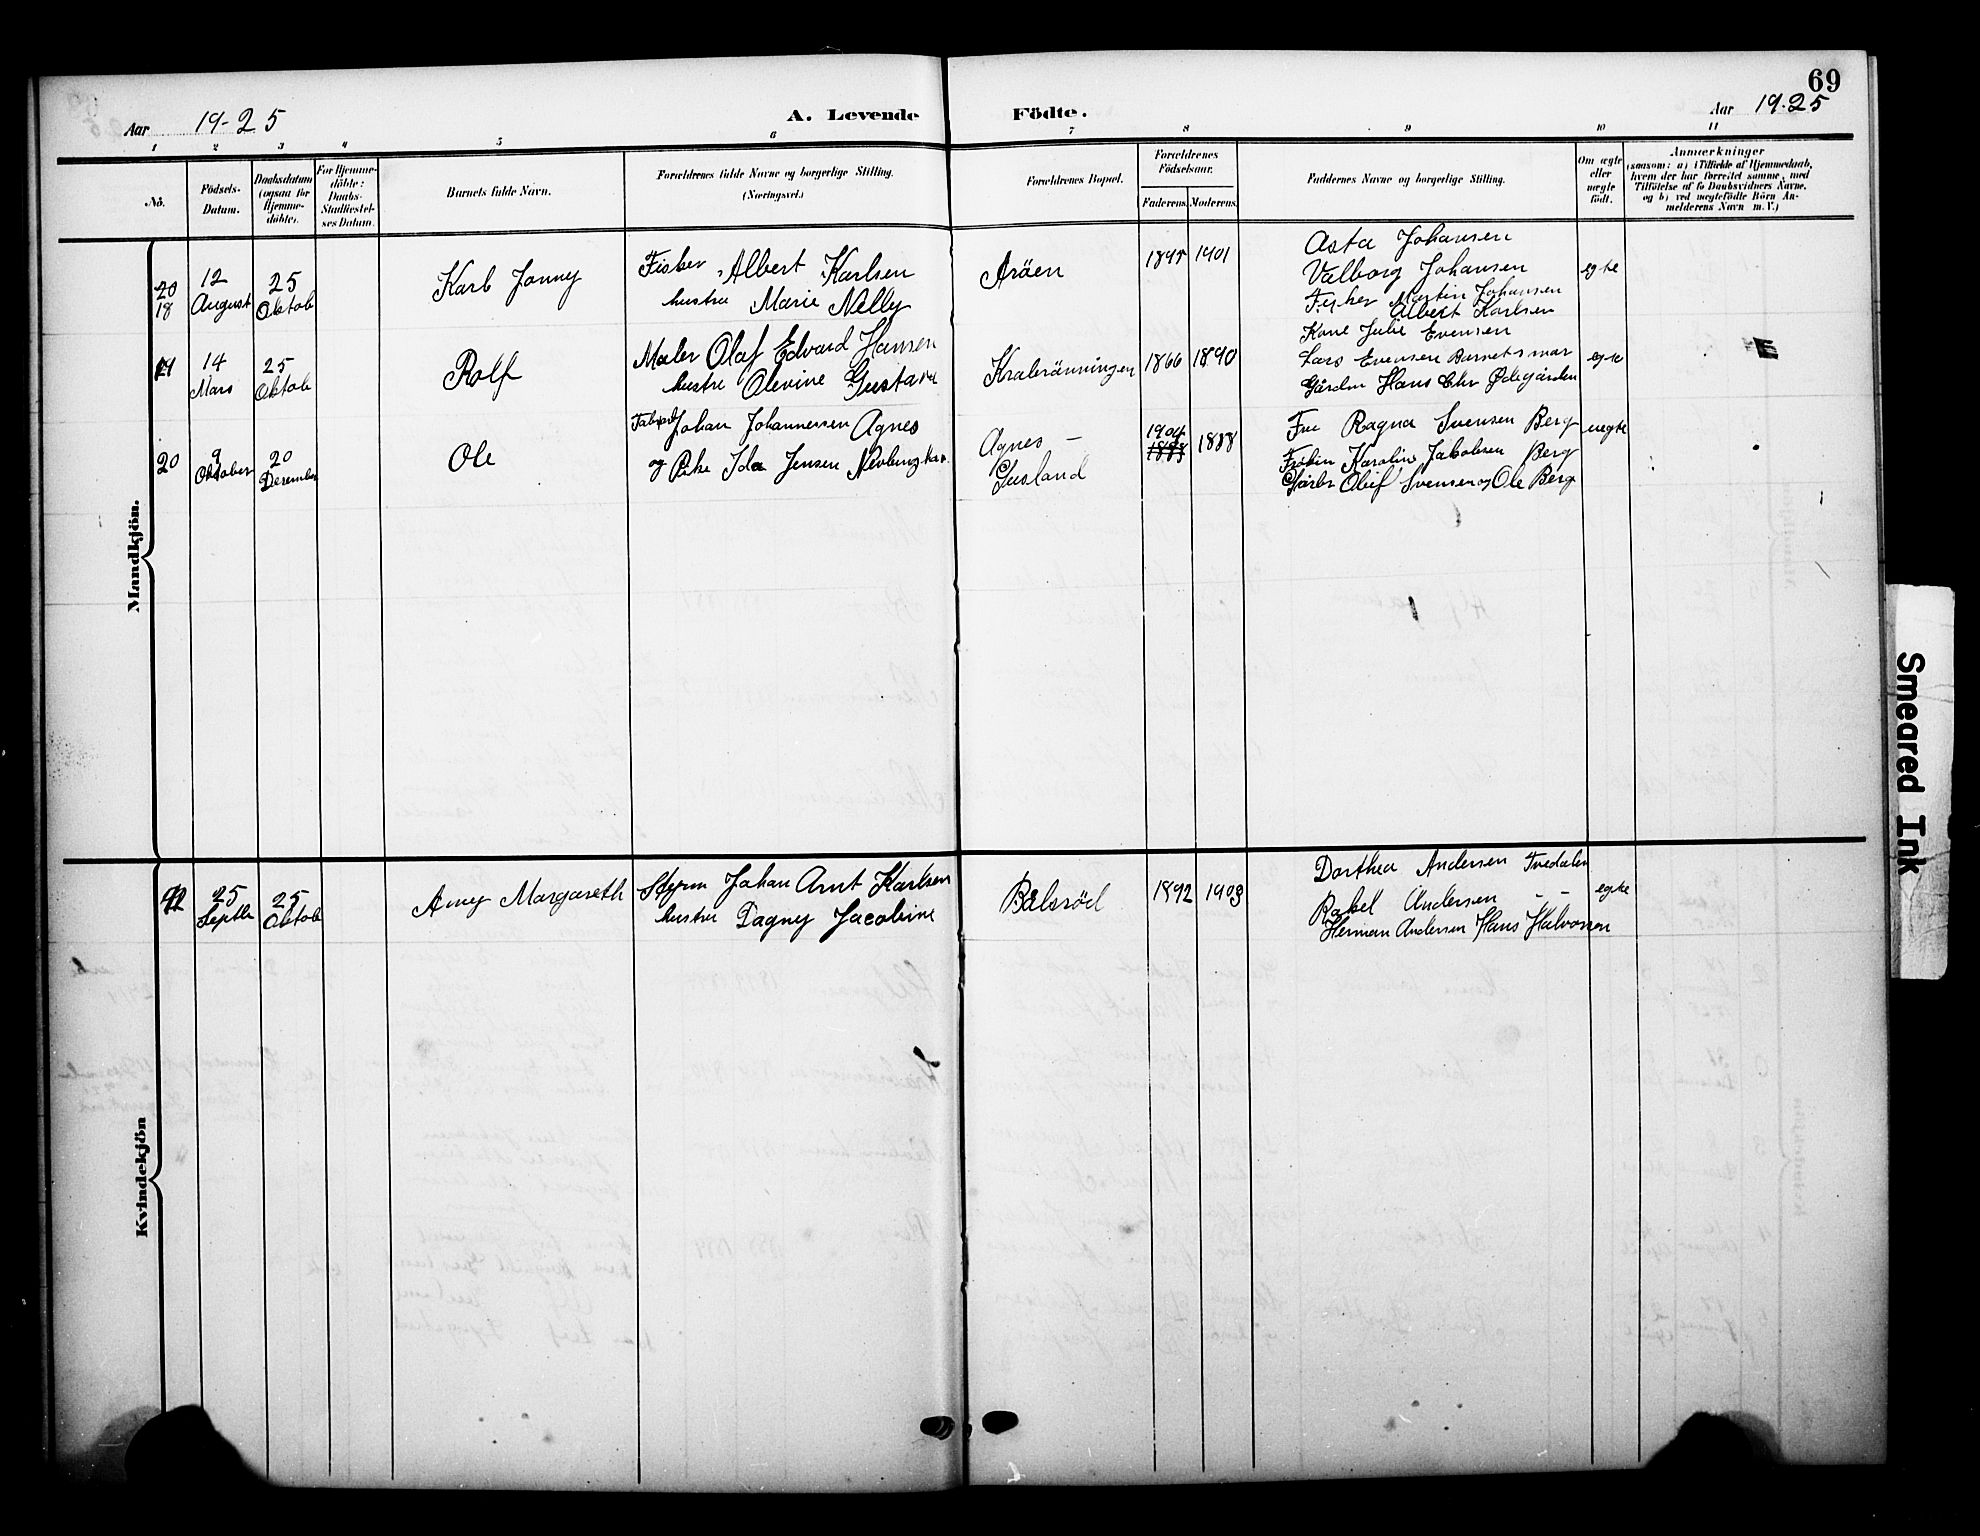 69
Aar 19-25
A. Levende Födte.
Aar 19.25
1 2 3 4 5 6 7 8 9 10 11
No.
Födsels-
Datum.
Daabsdatum
(ogsaa for
Hjemme-
döbte).
For Hjemme-
döbte:
Daabs-
Stadfæstel-
ses Datum.
Barnets fulde Navn.
Forældrenes fulde Navne og borgerlige Stilling.
(Næringsvei.)
Forældrenes Bopæl.
Forældrenes
Födselsaar.
Faderens. Moderens.
Faddernes Navne og borgerlige Stilling.
Om ægte
eller
uægte
födt.
Anmærkninger
(saasom: a) i Tilfælde af Hjemmedaab,
hvem der har forrettet samme, med
Tilföielse af to Daabsvidners Navne,
og b) ved uægtefödte Börn An-
melderens Navn m. V.)
Mandkjön.
20
18
12
August
25
Oktob
Karl Jonny
Fisker Albert Karlsen
hustru Marie Nelly
Aröen
1901
Asta Johansen
Valborg Johansen
Fisker Martin Johansen
Albert Karlsen
egte
14
Mars
25
Oktob
Rolf
Maler Olaf Edvard Hansen
hustru Olevine Gustava
Krabrönningen
1866 1890
Kone Julie Evensen
Lars Evensen Barnets mor
Gårdbr Hans Chr Ødegården
egte
20
9
Oktober
20
Desember
Ole
Johan Johannessen Agnes
og Pike Ida Jensen
Agnes –
Gusland
1904
1888
Fru Ragna Svensen Berg
Frøken Karoline Jakobsen Berg
Gårbr Oleif Svensen og Ole Berg
uegte
Kvindekjön
25
Septbr
25
Oktob
Amy Margareth
Styrm Johan Arnt Karlsen
hustru Dagny Jacobine
Balsröd
1892 1903
Dorthea Andersen Tvedalen
Rakel Andersen – –
Herman Andersen Hans Halvorsen
egte
Smeared Ink